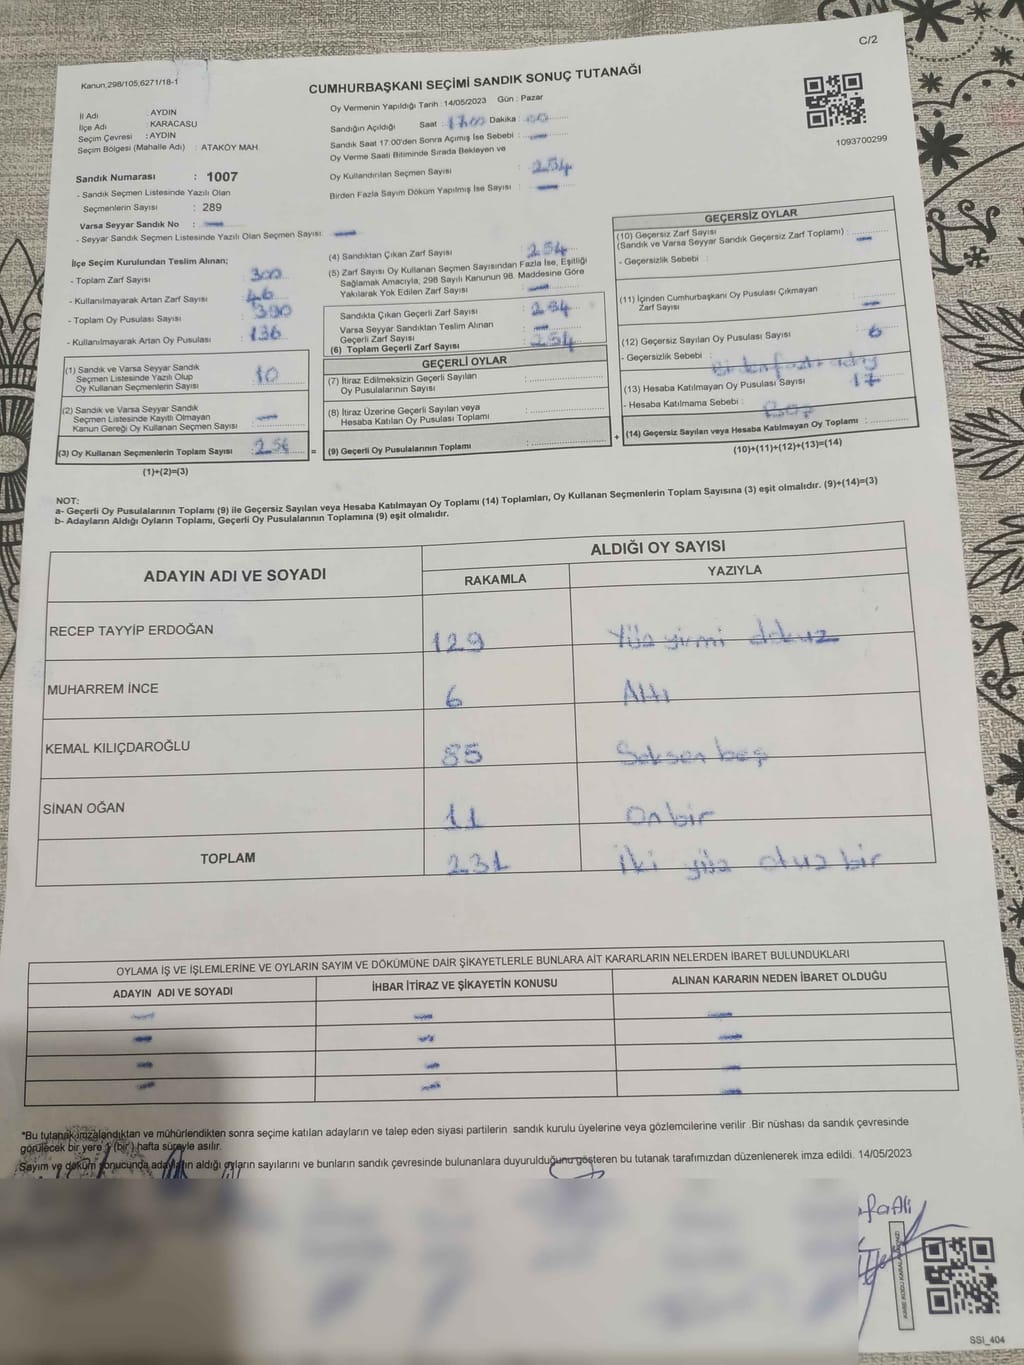 C/2
Kanun,298/105,6271/18-1
CUMHURBAŞKANI SEÇİMİ SANDIK SONUÇ TUTANAĞI
İl Adı : AYDIN
İlçe Adı : KARACASU
Seçim Çevresi : AYDIN
Seçim Bölgesi (Mahalle Adı) : ATAKÖY MAH.
Oy Vermenin Yapıldığı Tarih : 14/05/2023 Gün : Pazar
Sandığın Açıldığı Saat : 17:00 Dakika : 00
Sandık Saat 17:00'den Sonra Açımış İse Sebebi : —
Oy Verme Saati Bitiminde Sırada Bekleyen ve
Oy Kullandırılan Seçmen Sayısı : 254
Birden Fazla Sayım Döküm Yapılmış İse Sayısı : —
1093700299
Sandık Numarası : 1007
- Sandık Seçmen Listesinde Yazılı Olan
Seçmenlerin Sayısı : 289
Varsa Seyyar Sandık No : —
- Seyyar Sandık Seçmen Listesinde Yazılı Olan Seçmen Sayısı: —
İlçe Seçim Kurulundan Teslim Alınan;
- Toplam Zarf Sayısı : 300
- Kullanılmayarak Artan Zarf Sayısı : 46
- Toplam Oy Pusulası Sayısı : 390
- Kullanılmayarak Artan Oy Pusulası : 136
(1) Sandık ve Varsa Seyyar Sandık
Seçmen Listesinde Yazılı Olup
Oy Kullanan Seçmenlerin Sayısı : 10
(2) Sandık ve Varsa Seyyar Sandık
Seçmen Listesinde Kayıtlı Olmayan
Kanun Gereği Oy Kullanan Seçmen Sayısı : —
(3) Oy Kullanan Seçmenlerin Toplam Sayısı : 254 =
(1)+(2)=(3)
(4) Sandıktan Çıkan Zarf Sayısı : 254
(5) Zarf Sayısı Oy Kullanan Seçmen Sayısından Fazla İse, Eşitliği
Sağlamak Amacıyla, 298 Sayılı Kanunun 98. Maddesine Göre
Yakılarak Yok Edilen Zarf Sayısı : —
Sandıkta Çıkan Geçerli Zarf Sayısı : 254
Varsa Seyyar Sandıktan Teslim Alınan
Geçerli Zarf Sayısı : —
(6) Toplam Geçerli Zarf Sayısı : 254
GEÇERLİ OYLAR
(7) İtiraz Edilmeksizin Geçerli Sayılan
Oy Pusulasının Sayısı :
(8) İtiraz Üzerine Geçerli Sayılan veya
Hesaba Katılan Oy Pusulası Toplamı :
(9) Geçerli Oy Pusulalarının Toplamı : +
GEÇERSİZ OYLAR
(10) Geçersiz Zarf Sayısı
(Sandık ve Varsa Seyyar Sandık Geçersiz Zarf Toplamı) : —
- Geçersizlik Sebebi :
(11) İçinden Cumhurbaşkanı Oy Pusulası Çıkmayan
Zarf Sayısı : —
(12) Geçersiz Sayılan Oy Pusulası Sayısı : 6
- Geçersizlik Sebebi :
(13) Hesaba Katılmayan Oy Pusulası Sayısı : 17
- Hesaba Katılmama Sebebi : Boş
(14) Geçersiz Sayılan veya Hesaba Katılmayan Oy Toplamı :
(10)+(11)+(12)+(13)=(14)
NOT:
a- Geçerli Oy Pusulalarının Toplamı (9) ile Geçersiz Sayılan veya Hesaba Katılmayan Oy Toplamı (14) Toplamları, Oy Kullanan Seçmenlerin Toplam Sayısına (3) eşit olmalıdır. (9)+(14)=(3)
b- Adayların Aldığı Oyların Toplamı, Geçerli Oy Pusulalarının Toplamına (9) eşit olmalıdır.
ADAYIN ADI VE SOYADI ALDIĞI OY SAYISI
RAKAMLA YAZIYLA
RECEP TAYYİP ERDOĞAN 129 Yüz yirmi dokuz
MUHARREM İNCE 6 Altı
KEMAL KILIÇDAROĞLU 85 Seksen beş
SİNAN OĞAN 11 On bir
TOPLAM 231 iki yüz otuz bir
OYLAMA İŞ VE İŞLEMLERİNE VE OYLARIN SAYIM VE DÖKÜMÜNE DAİR ŞİKAYETLERLE BUNLARA AİT KARARLARIN NELERDEN İBARET BULUNDUKLARI
ADAYIN ADI VE SOYADI İHBAR İTİRAZ VE ŞİKAYETİN KONUSU ALINAN KARARIN NEDEN İBARET OLDUĞU
— — —
— — —
— — —
— — —
*Bu tutanak imzalandıktan ve mühürlendikten sonra seçime katılan adayların ve talep eden siyasi partilerin sandık kurulu üyelerine veya gözlemcilerine verilir .Bir nüshası da sandık çevresinde
görülecek bir yere 1 (bir ) hafta süreyle asılır.
Sayım ve döküm sonucunda adayların aldığı oyların sayılarını ve bunların sandık çevresinde bulunanlara duyurulduğunu gösteren bu tutanak tarafımızdan düzenlenerek imza edildi. 14/05/2023
SSI_404